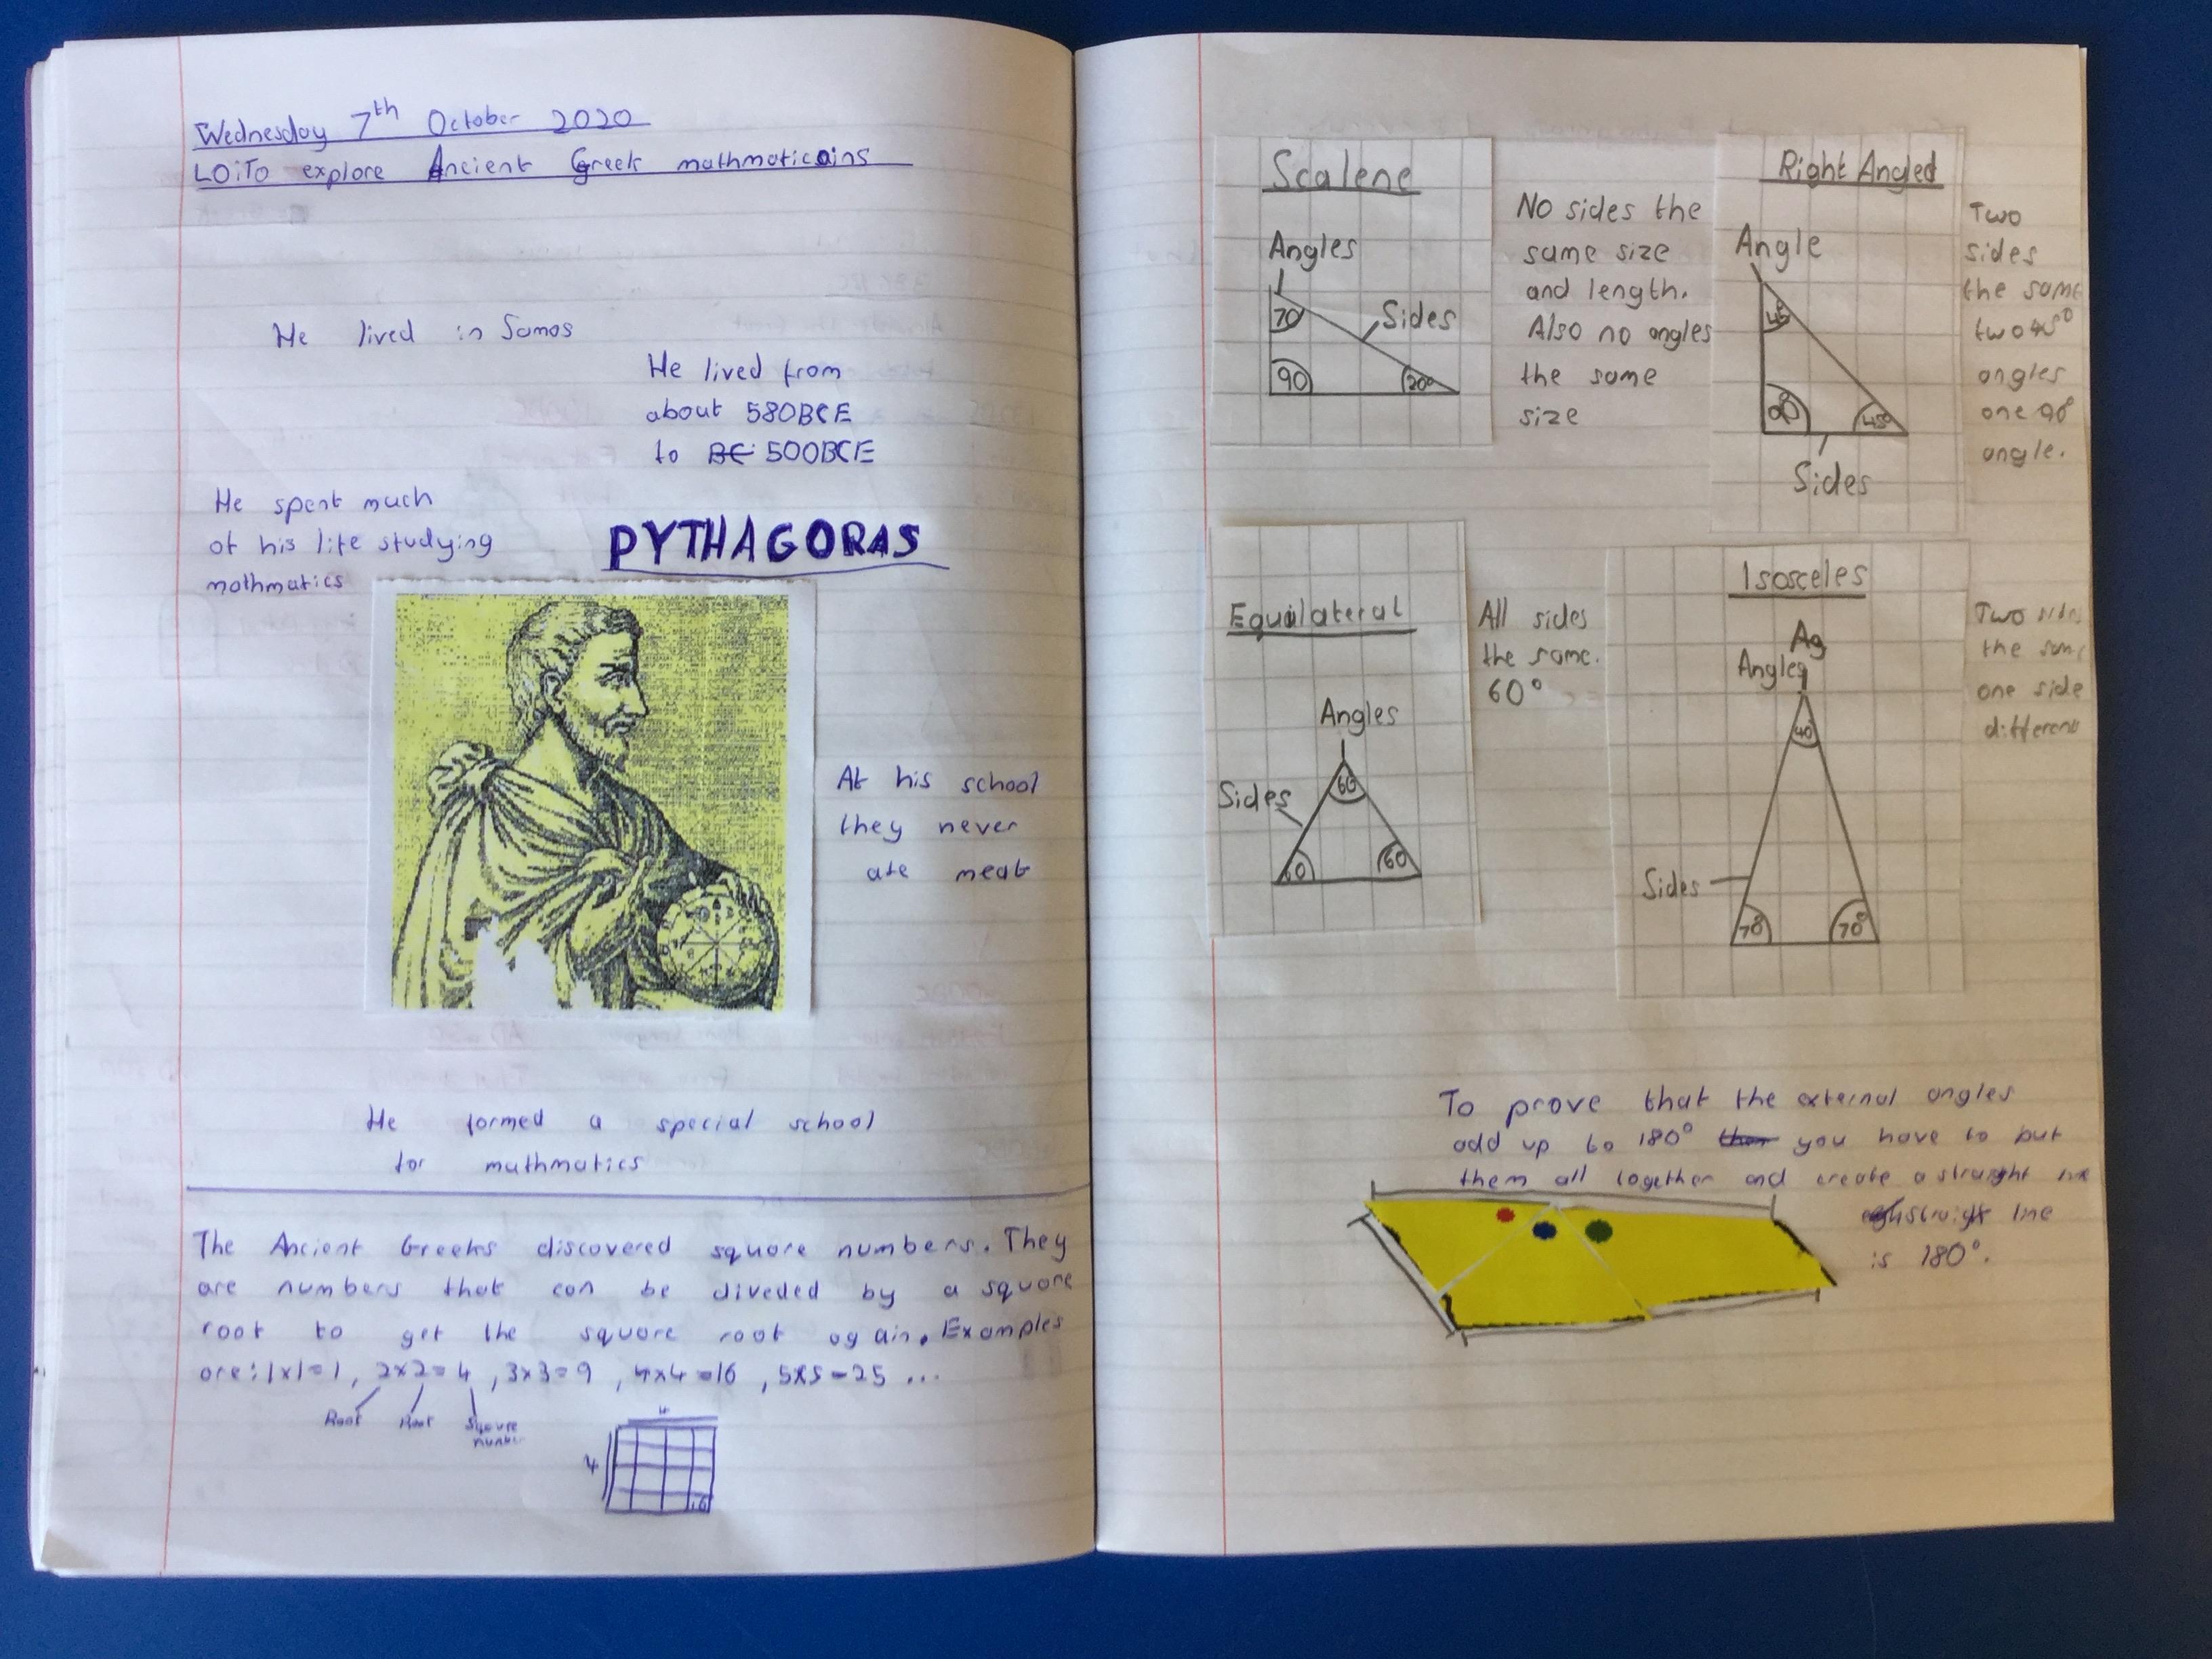 Wednesday 7th October 2020
LO:To explore Ancient Greek mathmaticains
He lived in Samos
He lived from
about 580BCE
to BC 500BCE
He spent much
of his life studying
mathmatics
PYTHAGORAS
At his school
they never
ate meat
He formed a special school
for mathmatics
The Ancient Greeks discovered square numbers. They
are numbers that can be diveded by a square
root to get the square root again. Examples
are: 1x1=1, 2x2=4, 3x3=9, 4x4=16, 5x5=25 ...
Root Root Square
number
4
4
16
Scalene
Angles
Sides
70
90
20°
No sides the
same size
and length.
Also no angles
the same
size
Right Angled
Angle
45
90
45°
Sides
Two
sides
the same
two 45°
angles
one 90°
angle.
Equilateral
Angles
Sides
60
60
60
All sides
the same.
60°
Isosceles
Ag
Angles
40
Sides
70°
70°
Two sides
the same
one side
different
To prove that the external angles
add up to 180° then you have to put
them all together and create a straight line
straight line
is 180°.